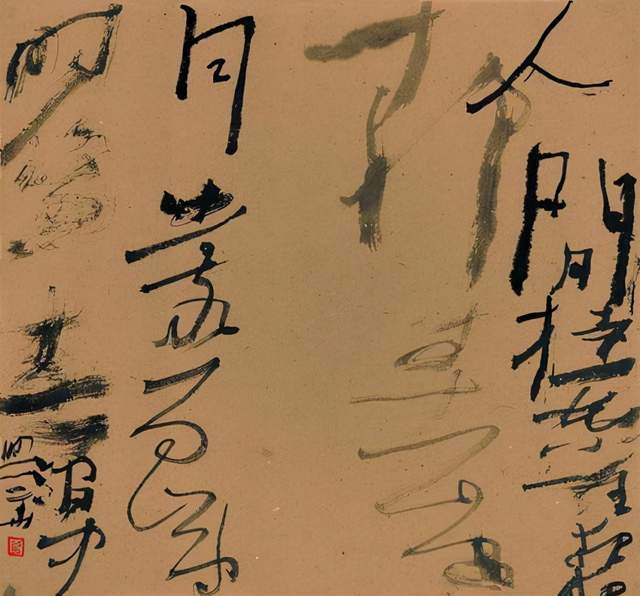 人閒桂花落夜
靜春山空
月出驚山鳥
時鳴春澗中